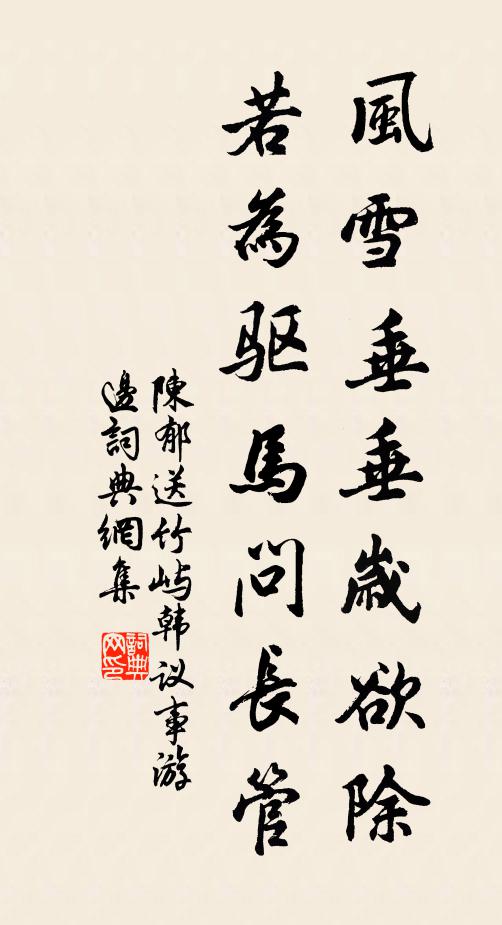 風雪垂垂歲欲除
若為驱馬問長管
陳郁送竹屿韩议事游
邊詞典網集
詞典網印